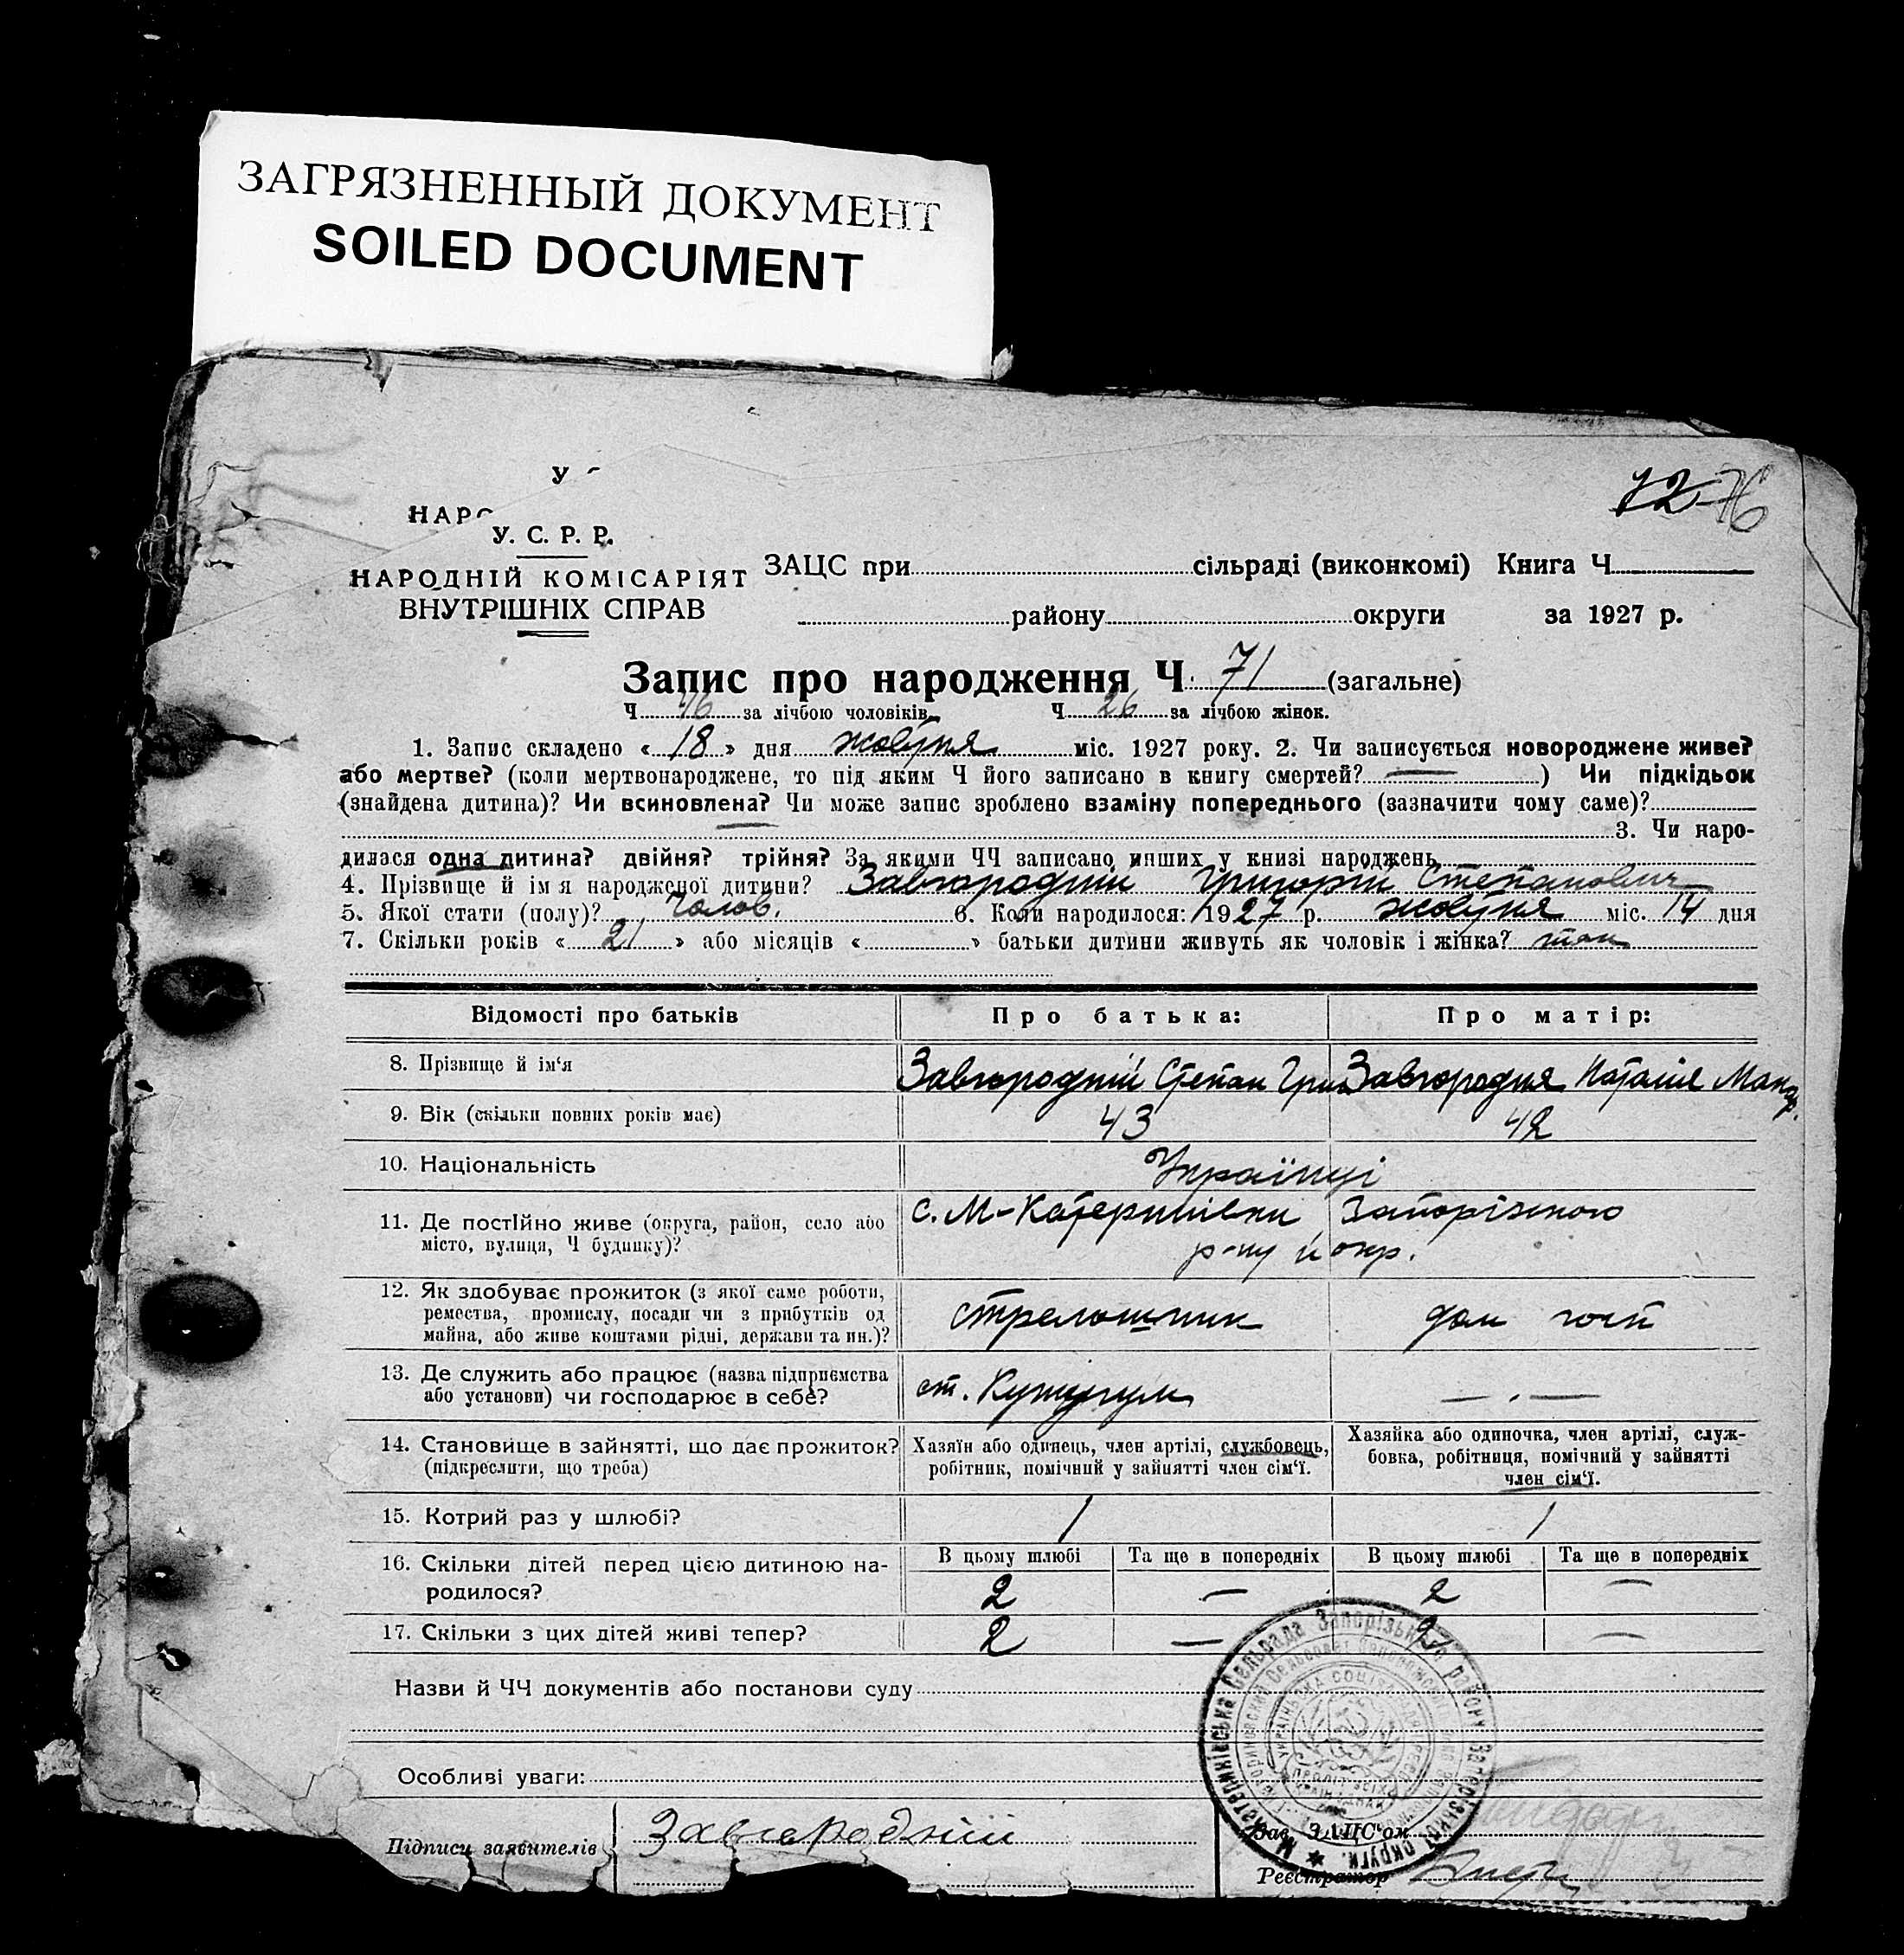 ЗАГРЯЗНЕННЫЙ ДОКУМЕНТ
SOILED DOCUMENT
72 76
У
НАРО
У. С. Р. Р.
НАРОДНІЙ КОМІСАРІЯТ
ВНУТРІШНІХ СПРАВ
ЗАЦС при сільраді (виконкомі) Книга Ч.
району округи за 1927 р.
Запис про народження Ч. 71 (загальне)
Ч. 46 за лічбою чоловіків. Ч. 26 за лічбою жінок.
1. Запис складено « 18 » дня жовтня міс. 1927 року. 2. Чи записується новороджене живе?
або мертве? (коли мертвонароджене, то під яким Ч його записано в книгу смертей? — ) Чи підкідьок
(знайдена дитина)? Чи всиновлена? Чи може запис зроблено взаміну попереднього (зазначити чому саме)?
3. Чи наро-
дилася одна дитина? двійня? трійня? За якими ЧЧ записано инших у книзі народжень
4. Прізвище й ім'я народженої дитини? Завгородній Григорій Степанович
5. Якої стати (полу)? Чолов. 6. Коли народилося: 1927 р. жовтня міс. 14 дня
7. Скільки років « 21 » або місяців « » батьки дитини живуть як чоловік і жінка? так
Відомості про батьків Про батька: Про матір:
8. Прізвище й ім'я Завгородній Степан Григ Завгородня Наталія
9. Вік (скільки повних років має) 43 42
10. Національність Українці
11. Де постійно живе (округа, район, село або с. М-Катеринівки Запорізького
місто, вулиця, Ч будинку)? р-ну й окр.
12. Як здобуває прожиток (з якої саме роботи,
ремества, промислу, посади чи з прибутків од
майна, або живе коштами рідні, держави та ин.)? стрелошник дом госп
13. Де служить або працює (назва підприємства
або установи) чи господарює в себе? ст. Кушугум — . —
14. Становище в зайнятті, що дає прожиток?
(підкреслити, що треба)
Хазяїн або одинець, член артілі, службовець,
робітник, помічний у зайнятті член сім'ї.
Хазяйка або одиночка, член артілі, служ-
бовка, робітниця, помічний у зайнятті
член сім'ї.
15. Котрий раз у шлюбі? 1 1
16. Скільки дітей перед цією дитиною на-
родилося?
В цьому шлюбі Та ще в попередніх В цьому шлюбі Та ще в попередніх
2 — 2 —
17. Скільки з цих дітей живі тепер? 2 — 2 —
Назви й ЧЧ документів або постанови суду
Особливі уваги:
Підписи заявителів Завгородній
Зав. ЗАЦС'ом
Реєстратор
М Катеринівська Сельрада Запорізького району Запорізької округи.